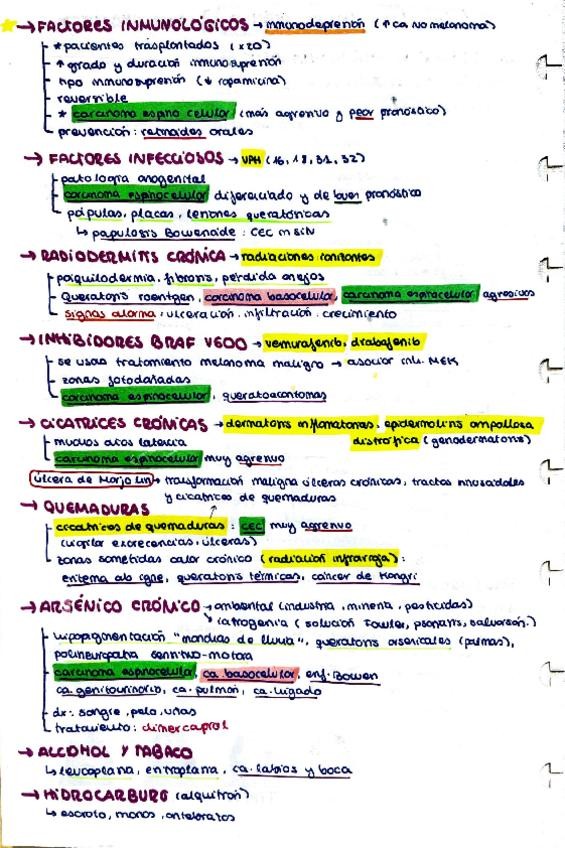 → FACTORES INMUNOLÓGICOS → inmunodepresión (↑ ca. no melanoma)
* pacientes trasplantados (x20)
↑ grado y duración inmunosupresión
tipo inmunosupresión (↓ rapamicina)
reversible
* carcinoma espinocelular (más agresivo y peor pronóstico)
prevención: retinoides orales
→ FACTORES INFECCIOSOS → VPH (16, 18, 31, 32)
patología anogenital
carcinoma espinocelular diferenciado y de buen pronóstico
pápulas, placas, lesiones queratósicas
↳ papulosis Bowenoide: CEC in situ
→ RADIODERMITIS CRÓNICA → radiaciones ionizantes
poiquilodermia, fibrosis, pérdida anejos
Queratosis roentgen, carcinoma basocelular, carcinoma espinocelular agresivos
signos alarma: ulceración, infiltración, crecimiento
→ INHIBIDORES BRAF V600 → vemurafenib, dabrafenib
se usan tratamiento melanoma maligno → asociar inh. MEK
zonas fotodañadas
carcinoma espinocelular, queratoacantomas
→ CICATRICES CRÓNICAS → dermatosis inflamatorias, epidermolisis ampollosa
distrófica (genodermatosis)
muchos años latencia
carcinoma espinocelular muy agresivo
úlcera de Marjolin → transformación maligna úlceras crónicas, tractos sinusoidales
y cicatrices de quemaduras
→ QUEMADURAS
cicatrices de quemaduras: CEC muy agresivo
(vigilar excrecencias, úlceras)
zonas sometidas calor crónico (radiación infrarroja):
eritema ab igne, queratosis térmicas, cáncer de Kangri
→ ARSÉNICO CRÓNICO → ambiental (industria, minería, pesticidas)
↘ iatrogenia (solución Fowler, psoriasis, salvarsán.)
hipopigmentación "manchas de lluvia", queratosis arsenicales (palmas),
polineuropatía sensitivo-motora
carcinoma espinocelular, ca. basocelular, enf. Bowen
ca. genitourinario, ca. pulmón, ca. hígado
dx: sangre, pelo, uñas
tratamiento: dimercaprol
→ ALCOHOL Y TABACO
↳ leucoplasia, eritroplasia, ca. labios y boca
→ HIDROCARBURO (alquitrán)
↳ escroto, manos, antebrazos